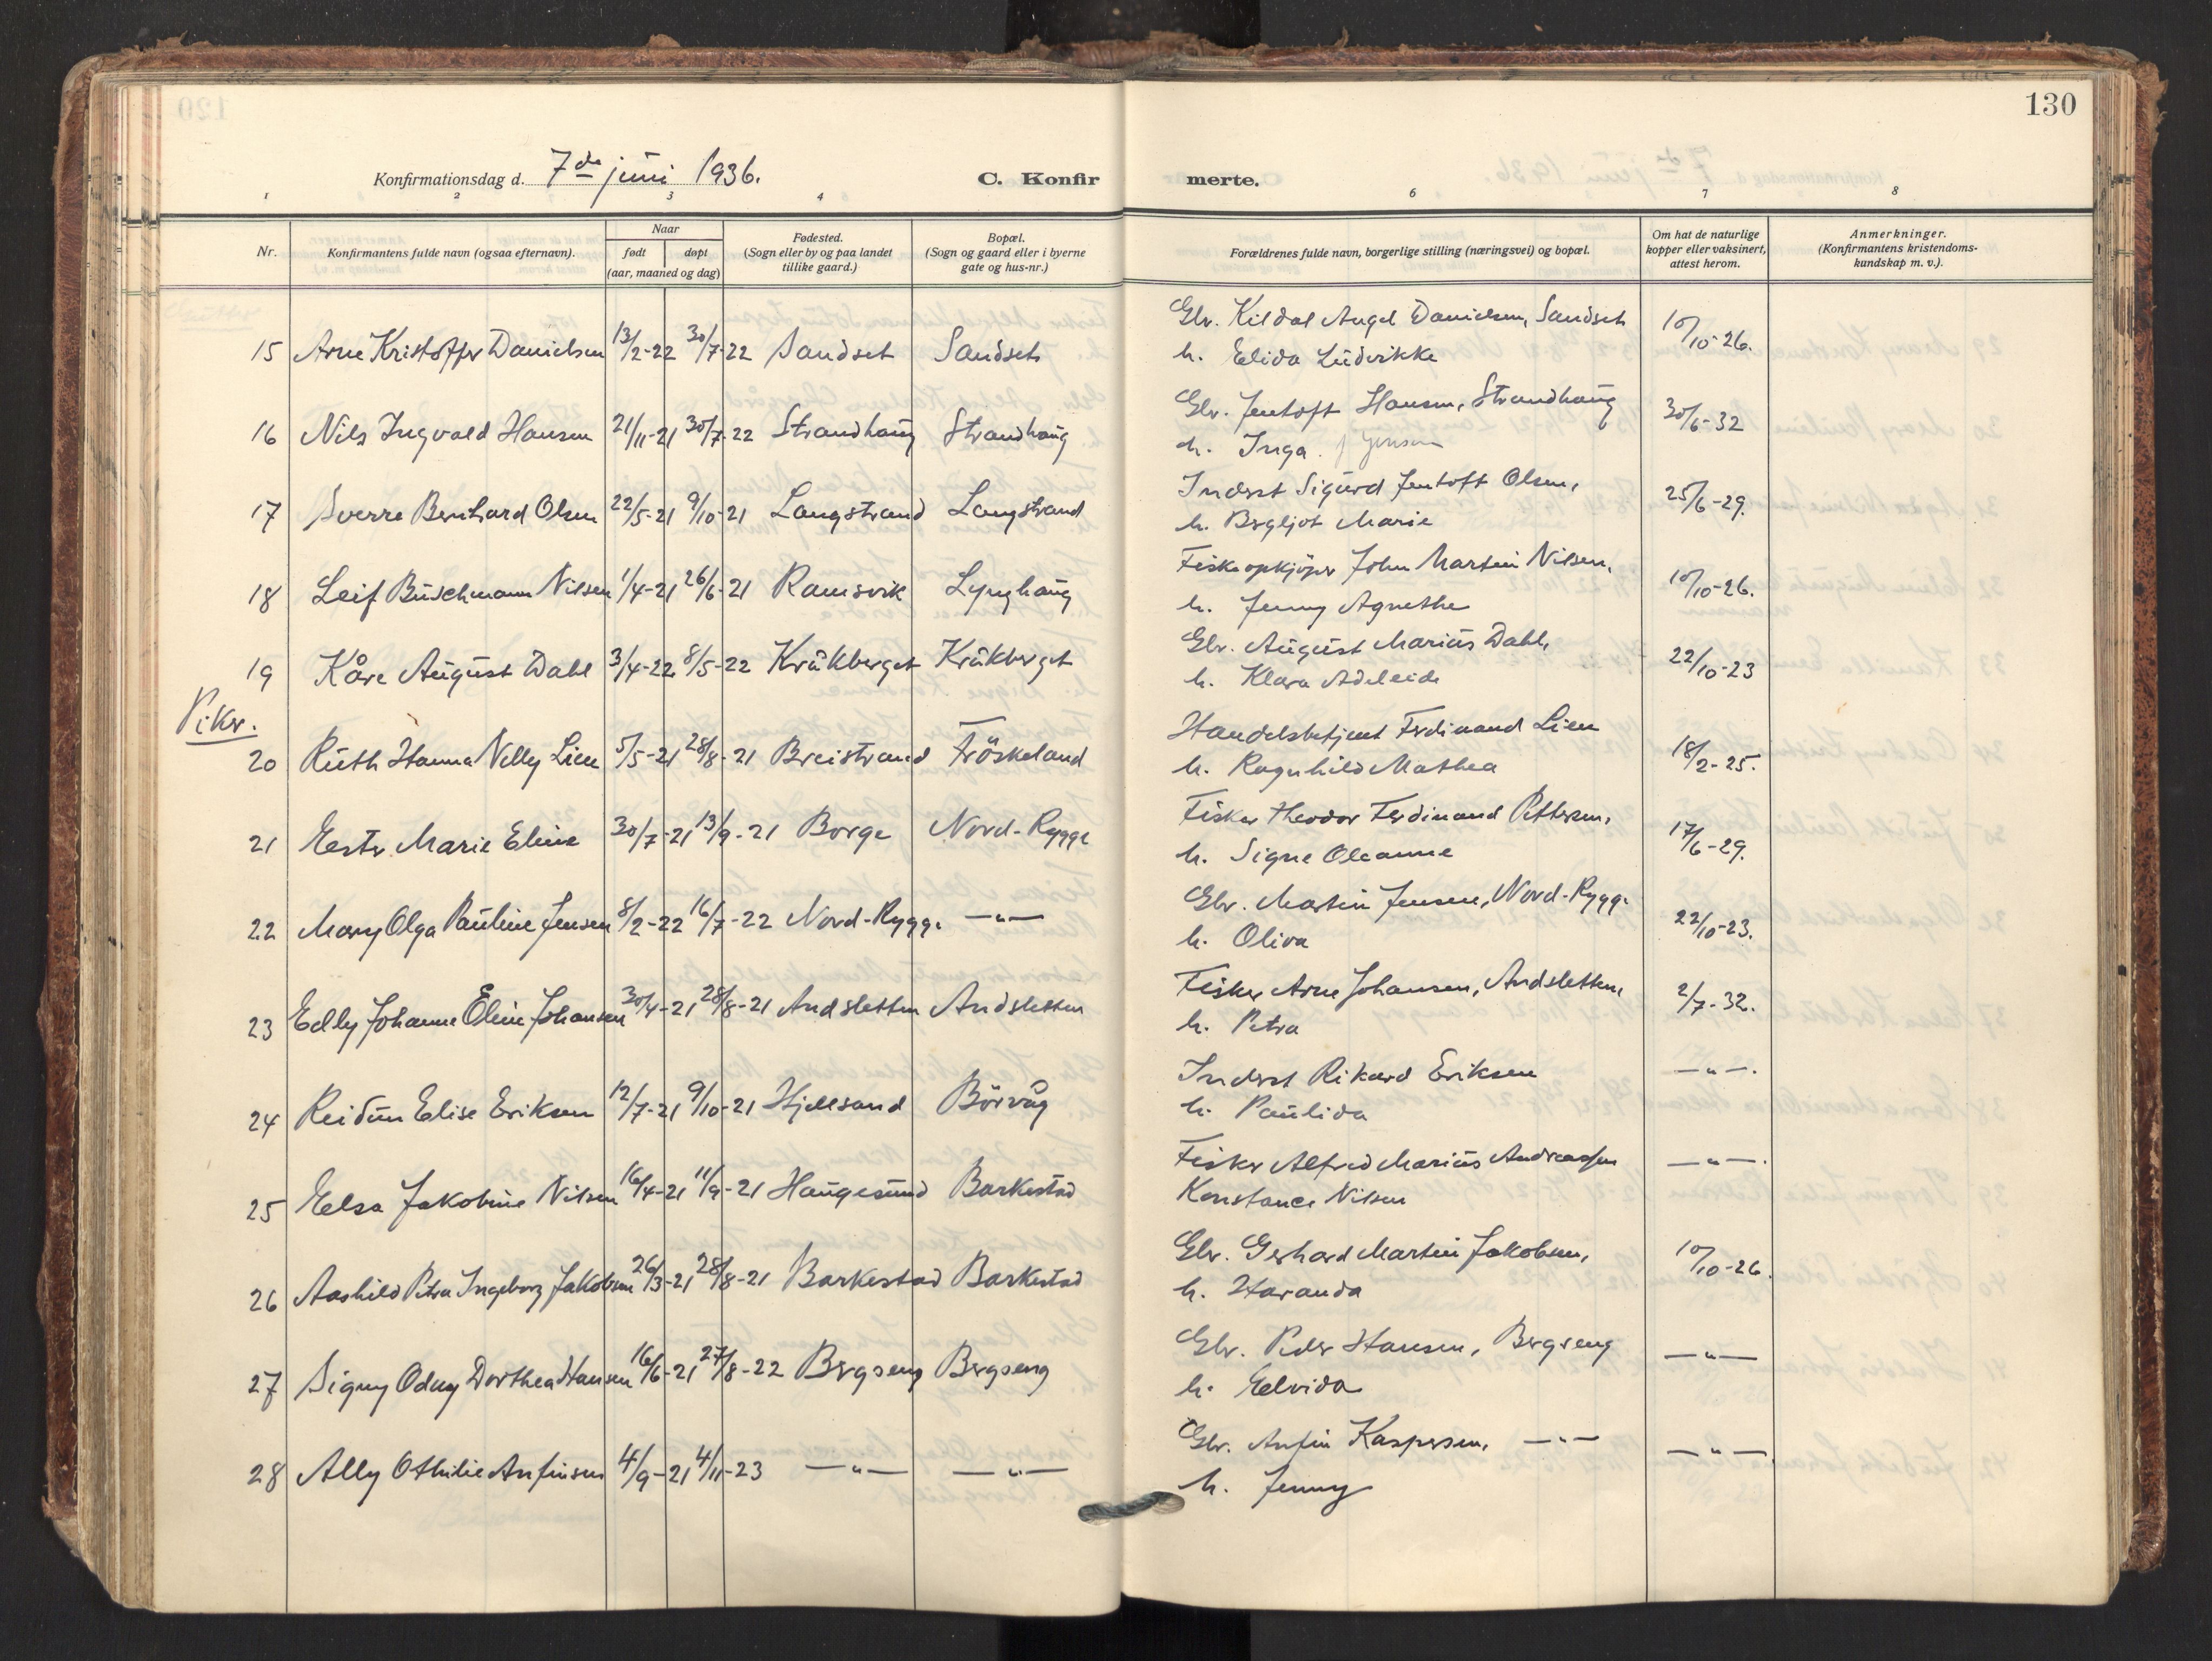 130
Konfirmationsdag d. 7de juni 1936.
C. Konfirmerte.
1 2 3 4 6 7 8
Nr.
Konfirmantens fulde navn (ogsaa efternavn).
Naar
født døpt
(aar, maaned og dag)
Fødested.
(Sogn eller by og paa landet
tillike gaard.)
Bopæl.
(Sogn og gaard eller i byerne
gate og hus-nr.)
Forældrenes fulde navn, borgerlige stilling (næringsvei) og bopæl.
Om hat de naturlige
kopper eller vaksinert,
attest herom.
Anmerkninger.
(Konfirmantens kristendoms-
kundskap m. v.).
Gbr. Kildal Angel Danielsen, Sandset
15 Arne Kristoffer Danielsen 13/2-22 30/7-22 Sandset Sandset 10/10-26.
h. Elida Ludvikke
Gbr. Jentoft Hansen, Strandhaug
16 Nils Ingvald Hansen 21/11-21 30/7-22 Strandhaug Strandhaug 30/6-32
h. Inga. f. Jensen
Inderst Sigurd Jentoft Olsen,
17 Sverre Bernhard Olsen 22/5-21 9/10-21 Langstrand Langstrand 25/6-29.
h. Bergljot Marie
Fiskeopkjöper John Martin Nilsen,
18 Leif Buschmann Nilsen 1/4-21 26/6-21 Ramsvik Lynghaug 10/10-26.
h. Jenny Agnethe
Gbr. August Marius Dahl,
19 Kåre August Dahl 3/4-22 8/5-22 Kråkberget Kråkberget 22/10-23
h. Klara Adeleide
Piker.
Handelsbetjent Ferdinand Lien
20 Ruth Hanna Nelly Lien 5/5-21 28/8-21 Breistrand Fröskeland 18/2-25.
h. Ragnhild Mathea
Fisker Theodor Ferdinand Pettersen,
21 Ester Marie Eline 30/7-21 13/9-21 Borge Nord-Rygge 17/6-29.
h. Signe Oleanne
Gbr. Martin Jensen, Nord-Rygge
22 Mary Olga Pauline Jensen 8/2-22 16/7-22 Nord-Rygge —"— 22/10-23.
h. Oliva
Fisker Arne Johansen, Andsletten,
23 Edly Johanne Eline Johansen 30/4-21 28/8-21 Andsletten Andsletten 2/7-32.
h. Petra
Inderst Rikard Eriksen —"—.
24 Reidun Elise Eriksen 12/7-21 9/10-21 Hjellsand Börvåg
h. Paulida
Fisker Alfred Marius Andreassen —"—.
25 Elsa Jakobine Nilsen 16/4-21 11/9-21 Haugesund Barkestad
Konstance Nilsen
Gbr. Gerhard Martin Jakobsen, 10/10-26.
26 Aashild Petra Ingeborg Jakobsen 26/3-21 28/8-21 Barkestad Barkestad
h. Haranda
Gbr. Peder Hansen, Bergseng —"—
27 Signy Odny Dorthea Hansen 16/6-21 27/8-22 Bergseng Bergseng
h. Elvida
Gbr. Anfin Kaspersen, —"— —"—
28 Ally Othilie Anfinsen 4/9-21 4/11-23 —"— —"—
h. Jenny